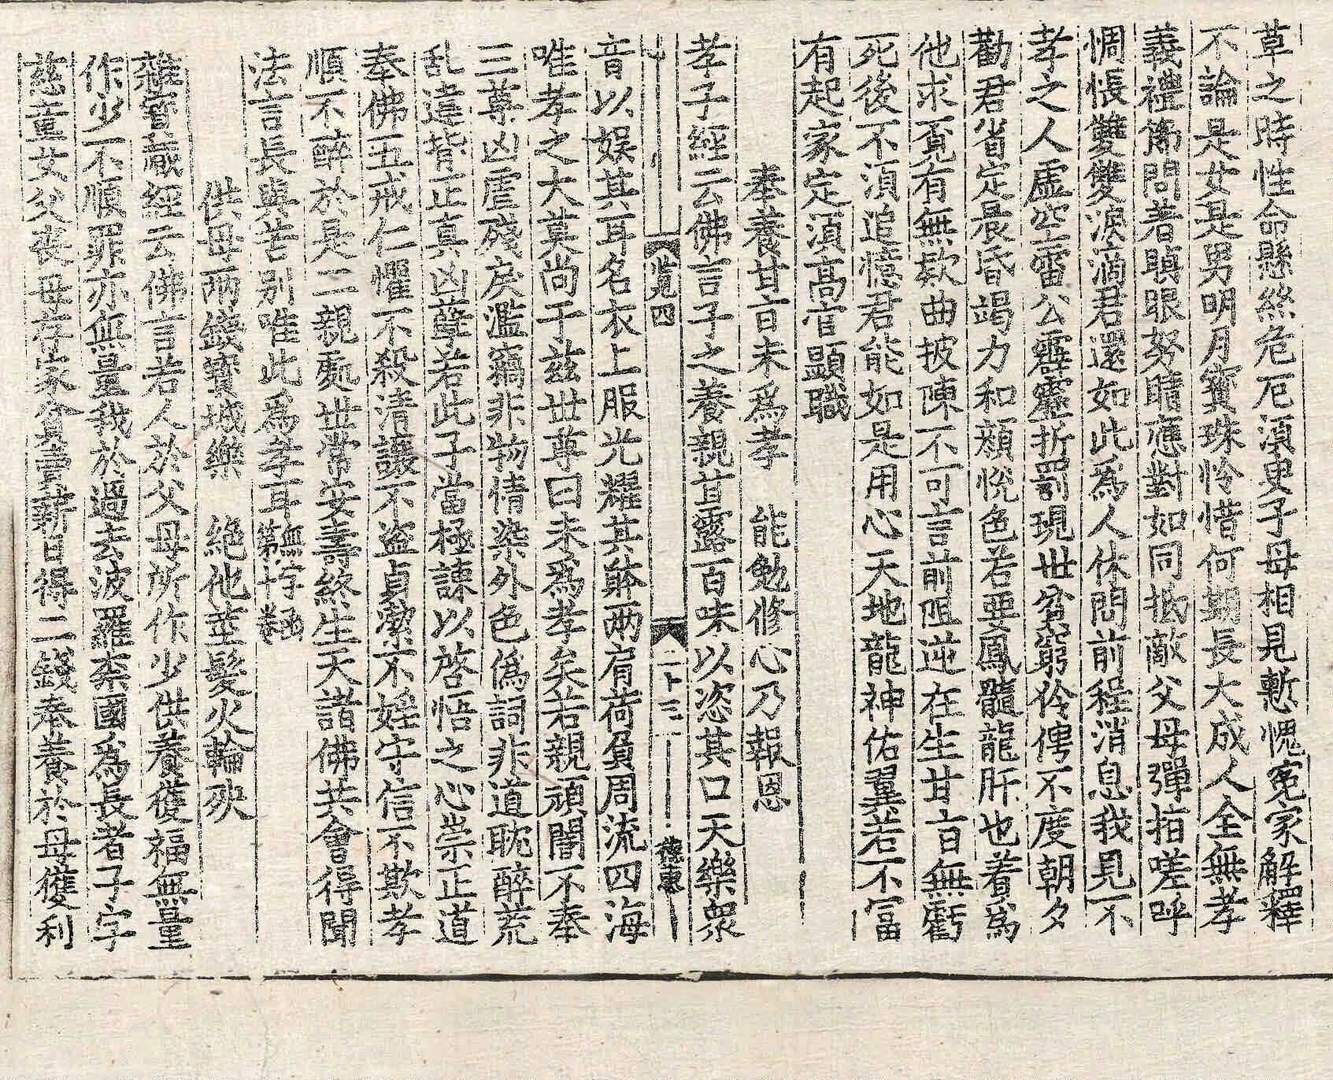 草之時性命懸絲危厄湏臾子母相見慙愧寃家解釋
不論是女是男明月寳珠怜惜何期長大成人全無孝
義禮節問著瞋眼努睛應對如同抵敵父母彈指嗟呼
惆悵雙雙淚滴君還如此為人休問前程消息我見不
孝之人虛空雷公霹靂折罰現世貧窮伶俜不度朝夕
勸君省定晨昏竭力和顏恱色若要鳳髓龍肝也着為
他求覔有無欵曲披陳不可言前咀逆在生甘旨無虧
死後不湏追憶君能如是用心天地龍神佑翼若不冨
有起家定湏高官顕職
奉養甘旨未為孝　能勉修心乃報恩
孝子經云佛言子之養親甘露百味以恣其口天樂衆
覽四　二十三　德惠
音以娛其耳名衣上服光耀其躰兩肩荷負周流四海
唯孝之大莫尚于兹世尊曰未為孝矣若親頑闇不奉
三尊凶虐殘戾濫竊非物情染外色偽詞非道耽醉荒
乱違背正真凶孽若此子當極諫以啓悟之心崇正道
奉佛五戒仁懼不殺清讓不盗貞潔不婬守信不欺孝
順不醉於是二親處世常安壽終生天諸佛共會得聞
法言長與苦別唯此為孝耳無字函第十卷
供母兩錢寳城樂　絶他莖髮火輪殃
雜寳藏經云佛言若人於父母所作少供養獲福無量
作少不順罪亦無量我於過去波羅柰國為長者子字
慈童女父喪母存家貧賣薪日得二錢奉養於母獲利